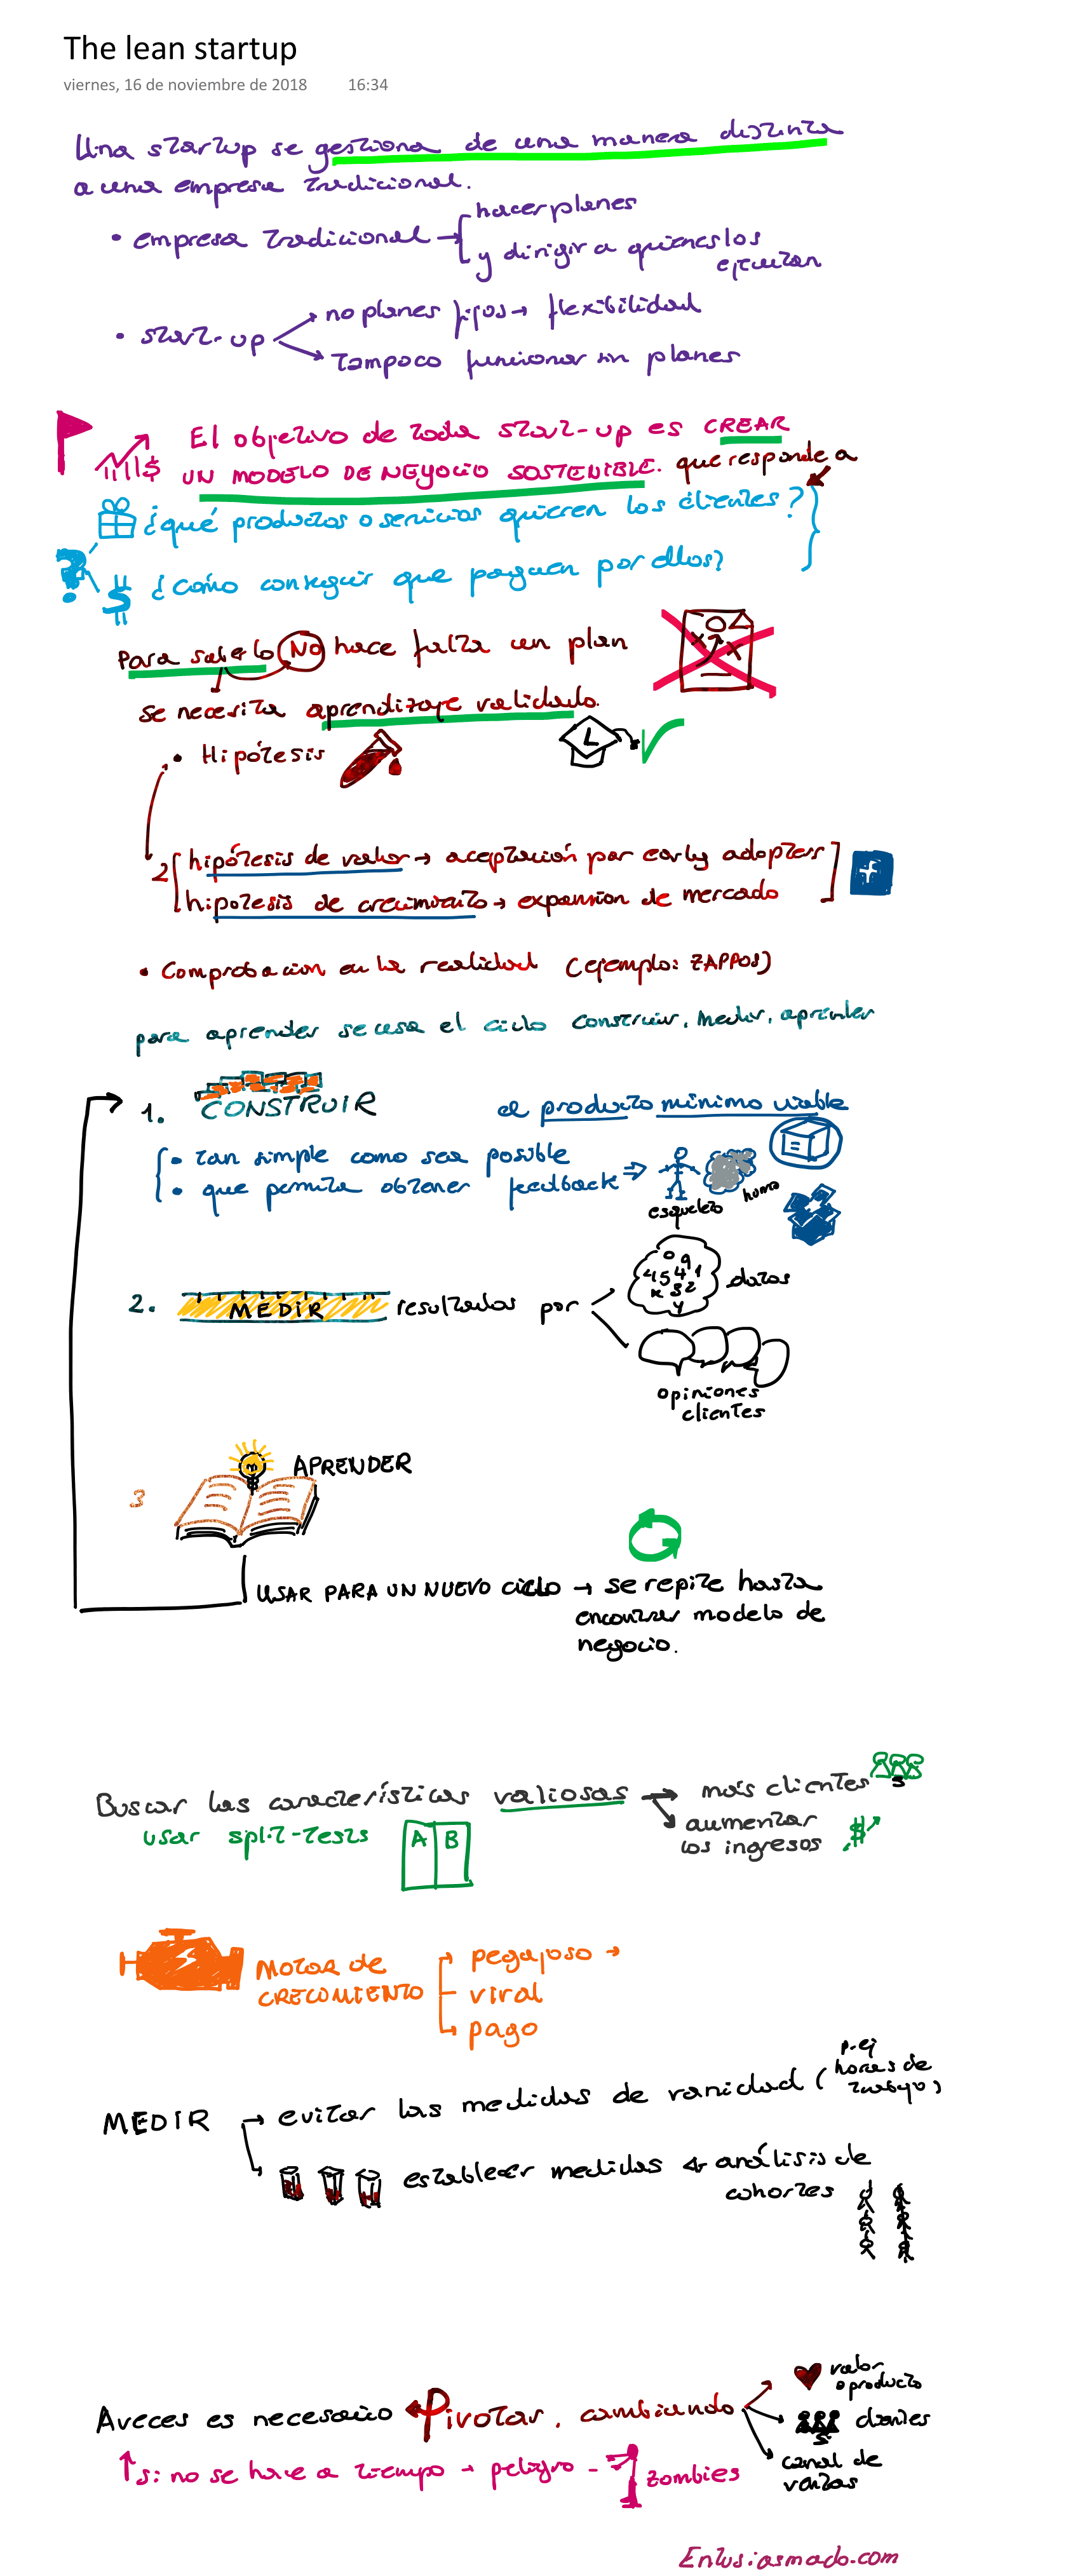 The lean startup
viernes, 16 de noviembre de 2018 16:34
Una startup se gestiona de una manera distinta
a una empresa tradicional.
• empresa tradicional → hacer planes
y dirigir a quienes los
ejecutan
• start-up → no planes fijos → flexibilidad
→ tampoco funcionar sin planes
El objetivo de toda start-up es CREAR
UN MODELO DE NEGOCIO SOSTENIBLE. que responde a
¿qué productos o servicios quieren los clientes?
? $ ¿cómo conseguir que paguen por ellos?
Para saberlo NO hace falta un plan
se necesita aprendizaje validado.
• Hipótesis
L
2 hipótesis de valor → aceptación por early adopters
hipótesis de crecimiento → expansión de mercado
+
• Comprobación en la realidad (ejemplo: ZAPPOS)
para aprender se usa el ciclo construir, medir, aprender
1. CONSTRUIR el producto mínimo viable
• tan simple como sea posible
• que permita obtener feedback ⇒
esqueleto humo
2. MEDIR resultados por datos
opiniones
clientes
3 APRENDER
USAR PARA UN NUEVO ciclo → se repite hasta
encontrar modelo de
negocio.
Buscar las características valiosas → más clientes
usar split-tests A B → aumentar
los ingresos $
MOTOR de
CRECIMIENTO
→ pegajoso →
- viral
→ pago
MEDIR → evitar las medidas de vanidad (p.ej
horas de
trabajo)
establecer medidas análisis de
cohortes
A veces es necesario Pivotar, cambiando
valor
o producto
clientes
canal de
ventas
↑ si no se hace a tiempo → peligro - zombies
Entusiasmado.com